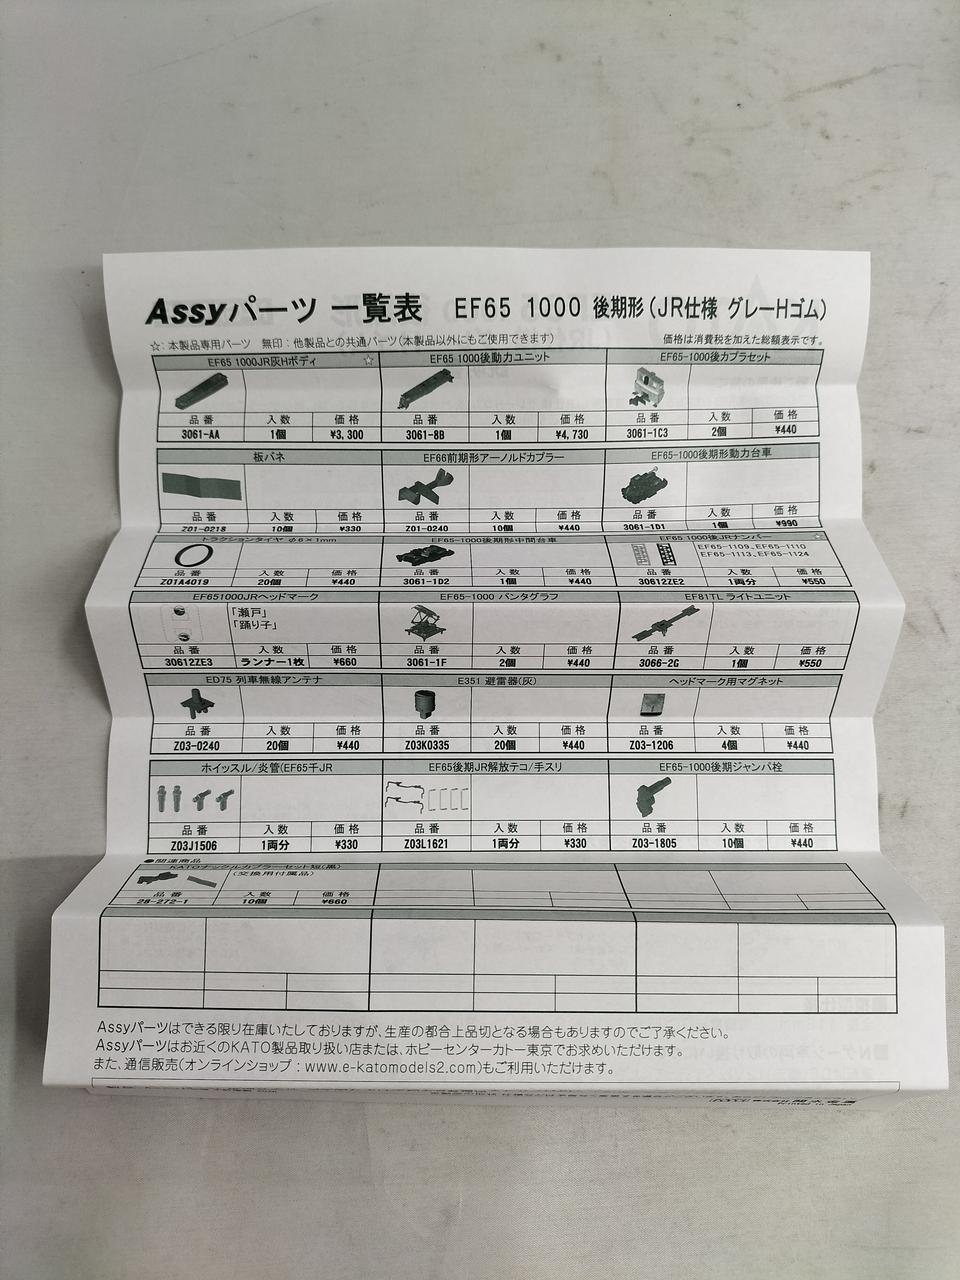 Assyパーツ 一覧表 EF65 1000 後期形(JR仕様 グレーHゴム)
☆:本製品専用パーツ 無印:他製品との共通パーツ(本製品以外にもご使用できます) 価格は消費税を加えた総額表示です。
EF65 1000JR灰Hボディ ☆ EF65 1000後動力ユニット EF65-1000後カプラセット
品番 入数 価格 品番 入数 価格 品番 入数 価格
3061-AA 1個 ¥3,300 3061-8B 1個 ¥4,730 3061-1C3 2個 ¥440
板バネ EF66前期形アーノルドカプラー EF65-1000後期形動力台車
品番 入数 価格 品番 入数 価格 品番 入数 価格
Z01-0218 10個 ¥330 Z01-0240 10個 ¥440 3061-1D1 1個 ¥990
トラクションタイヤ φ6×1mm EF65-1000後期形中間台車 EF65 1000後JRナンバー ☆
EF65-1109、EF65-1110
EF65-1113、EF65-1124
品番 入数 価格 品番 入数 価格 品番 入数 価格
Z01A4019 20個 ¥440 3061-1D2 1個 ¥440 30612ZE2 1両分 ¥550
EF651000JRヘッドマーク EF65-1000 パンタグラフ EF81TL ライトユニット
「瀬戸」
「踊り子」
品番 入数 価格 品番 入数 価格 品番 入数 価格
30612ZE3 ランナー1枚 ¥660 3061-1F 2個 ¥440 3066-2G 1個 ¥550
ED75 列車無線アンテナ E351 避雷器(灰) ヘッドマーク用マグネット
品番 入数 価格 品番 入数 価格 品番 入数 価格
Z03-0240 20個 ¥440 Z03K0335 20個 ¥440 Z03-1206 4個 ¥440
ホイッスル/炎管(EF65千JR EF65後期JR解放テコ/手スリ EF65-1000後期ジャンパ栓
品番 入数 価格 品番 入数 価格 品番 入数 価格
Z03J1506 1両分 ¥330 Z03L1621 1両分 ¥330 Z03-1805 10個 ¥440
●関連商品
KATOナックルカプラーセット短(黒)
(交換用付属品)
品番 入数 価格
28-272-1 10個 ¥660
Assyパーツはできる限り在庫いたしておりますが、生産の都合上品切となる場合もありますのでご了承ください。
Assyパーツはお近くのKATO製品取り扱い店または、ホビーセンターカトー東京でお求めいただけます。
また、通信販売(オンラインショップ:www.e-katomodels2.com)もご利用いただけます。